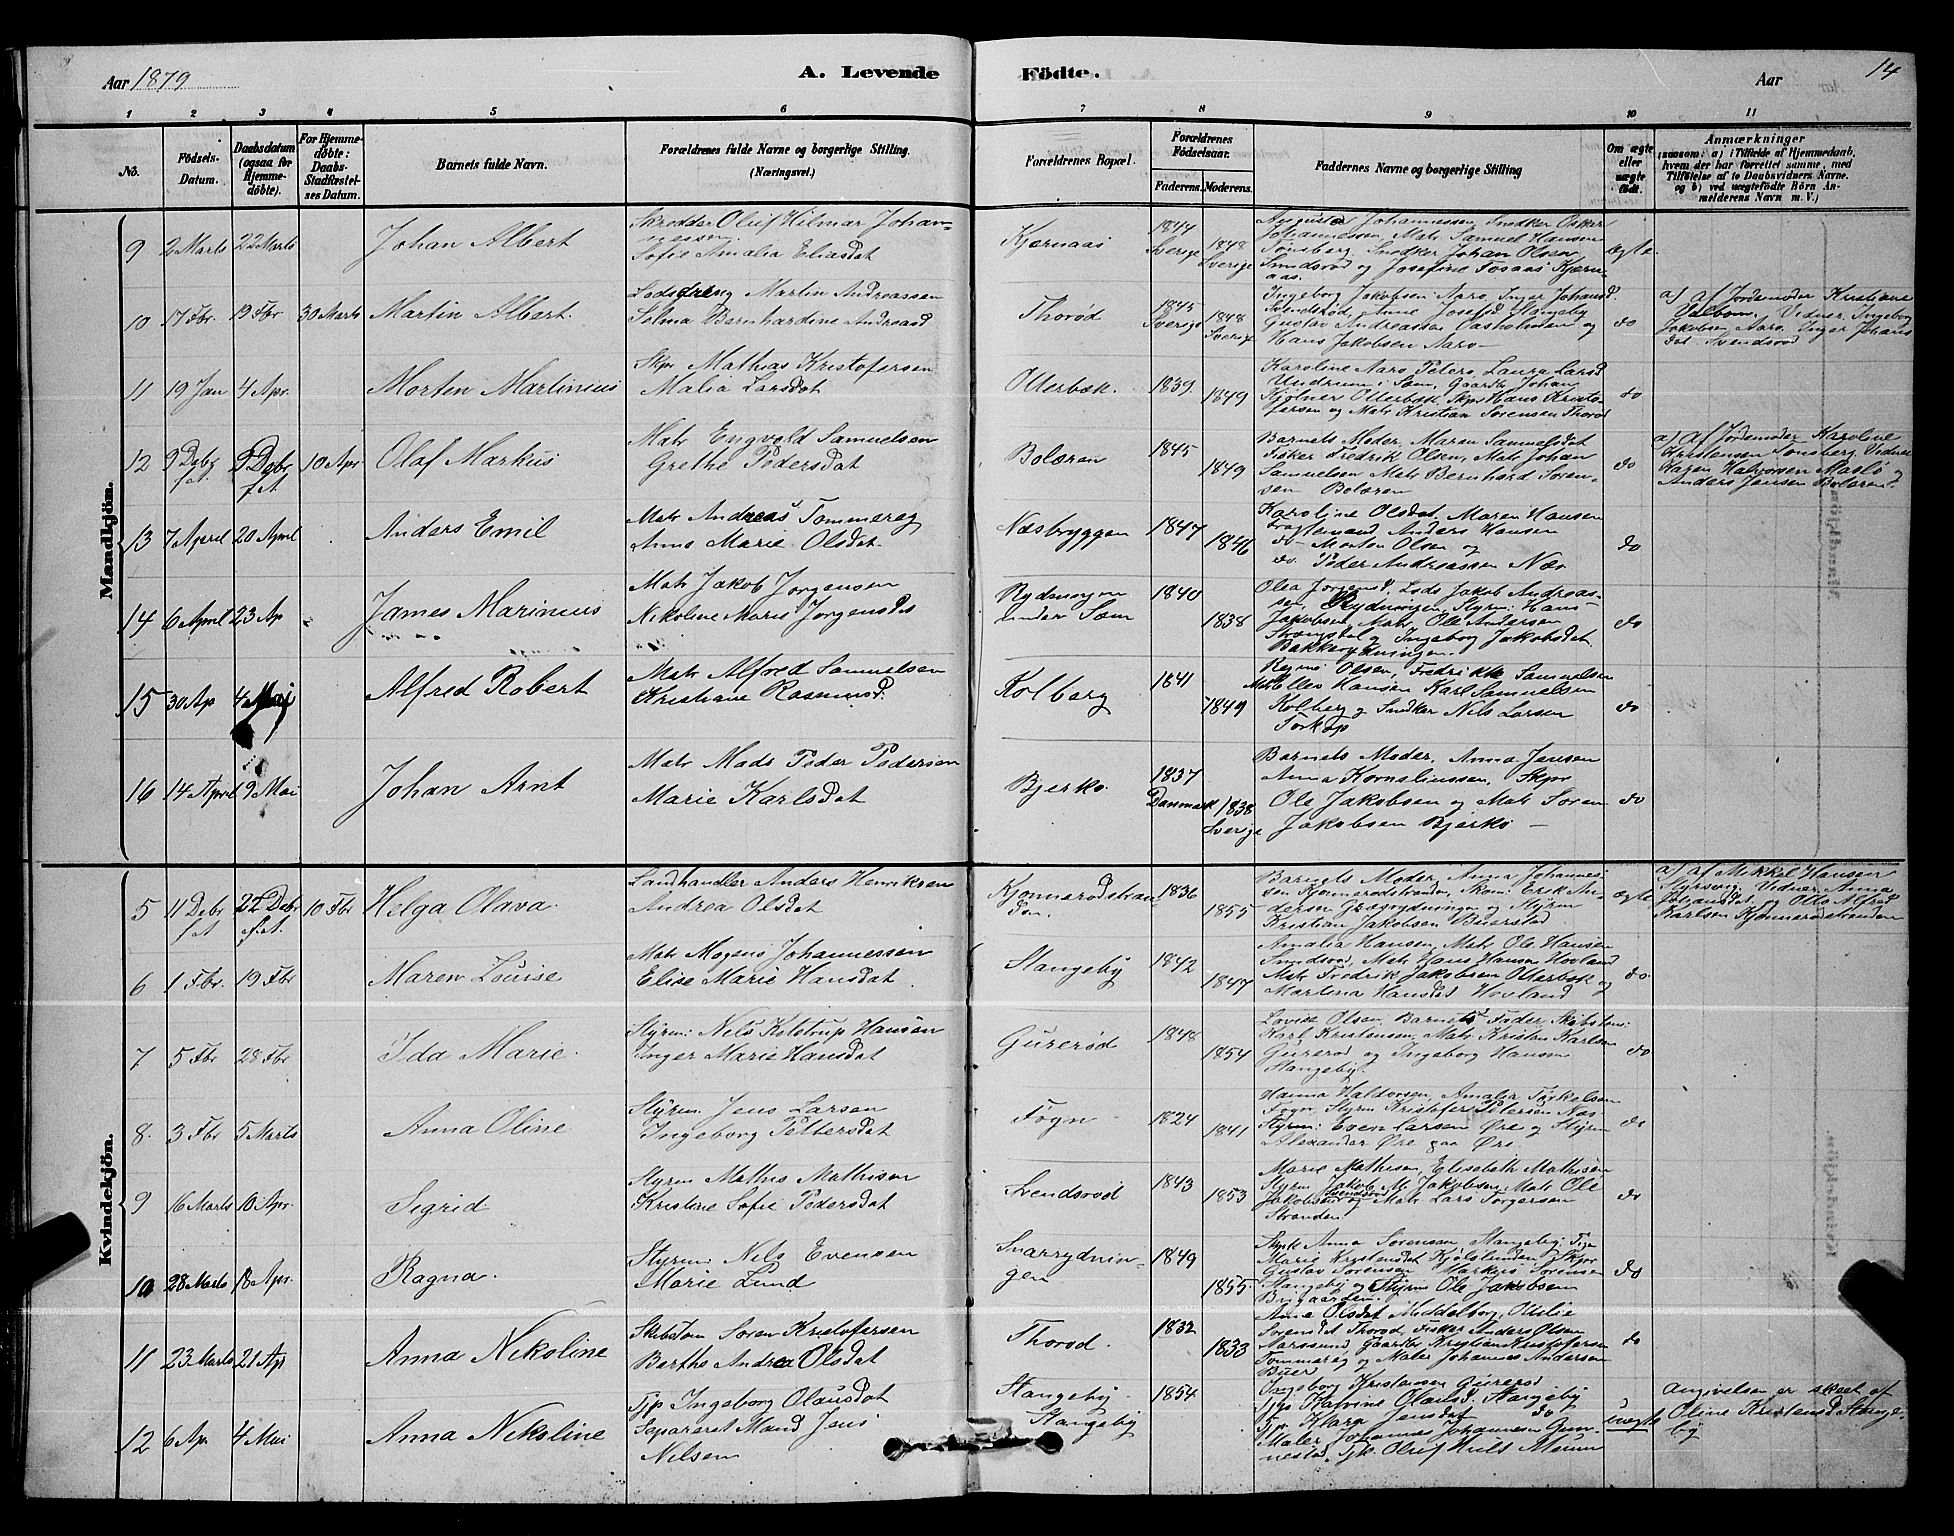 Aar 1879
A. Levende Födte.
Aar
14
1 2 3 4 5 6 7 8 9 10 11
No.
Födsels-Datum.
Daabsdatum (ogsaa for Hjemme-döbte).
For Hjemme-döbte: Daabs-Stadfæstel-ses Datum.
Barnets fulde Navn.
Forældrenes fulde Navne og borgerlige Stilling. (Næringsvei.)
Forældrenes Bopæl.
Forældrenes Födselsaar.
Faderens. Moderens.
Faddernes Navne og borgerlige Stilling
Om ægte eller uægte födt.
Anmærkninger
(saasom: a) i Tilfælde af Hjemmedaab,
hvem der har forrettet samme, med
Tilföielse af to Daabsvidners Navne.
og b) ved uægtefödte Börn An-
melderens Navn m. V.)
Mandkjön.
9 2 Marts 22 Marts Johan Albert
Skrædder Oluf Hilmar Johan-
nessen
Sofie Amalia Eliasdat
Kjærnaas 1844 Sverige 1848 Sverige
August Johannessen, Snedker Oskar
Johannessen, Matr Samuel Hansen
Tønsberg, Snedker Johan Olsen
Smidsrød og Josefine Fosaas Kjærn-
aas.
ægte.
10 17 Fbr. 19 Fbr 30 Marts Martin Albert.
Lodsdreng Martin Andreassen
Selma Bernhardine Andreasd
Thorød 1845 Sverige 1848 Sverige
Ingeborg Jakobsen Aarø, Inger Johansd.
Svendsrød, Anne Josefsd Stangeby
Gustav Andreassen Vasholmen og
Hans Jakobsen Aarø
do
a) af Jordemoder Kristiane
Vidner, Ingeborg
Jakobsen Aarø, Inger Johans
dat Svendsrød
11 19 Jan 4 Apr. Morten Martinius
Skpr Mathias Kristofersen
Malia Larsdat
Otterbæk. 1839 1849
Karoline Aarø, Peters, Laura Larsd
Undrum i Sem, Gaardb Johan
Kjølner Otterbæk, Skpr Hans Kristo-
fersen og Matr Kristian Sørensen Thorød
do
12 9 Debr f.A. 9 Debr f.A. 10 Apr. Olaf Markus
Matr Engvold Samuelsen
Grethe Pedersdat
Bolæren 1845 1849
Barnets Moder, Maren Samuelsdat
Fisker Fredrik Olsen, Matr Johan
Samuelsen Matr Bernhard Soren-
sen Bolæren
do
a) af Jordemoder Karoline
Christensen Tønsberg. Vidner
Karen Halvorsen Maslø og
Anders Jensen Bolæren.
13 7 April 20 April Anders Emil
Matr Andreas Tommerøg
Anne Marie Olsdat.
Næsbryggen 1847 1846
Karoline Olsdat, Maren Hansen
Fragtemand Anders Hansen
do Morten Olsen og
do. Peder Andreassen Næs
do
14 6 April 23 Ap James Marinius
Matr Jakob Jorgensen
Nikoline Marie Jorgensdat
Rydningen
under Sem 1840 1838
Olea Jorgensd, Lods Jakob Andreas-
sen, Rydningen, Styrm: Hans
Jakobsen, Matr Ole Andersen
Strængsdal og Ingeborg Jakobsdat
Bakkerydningen.
do
15 30 Ap 4 Mai Alfred Robert
Matr Alfred Samuelsen
Kristiane Rasmusd.
Kolberg 1841 1849
Regine Olsen, Fredrikke Samuelsen
Matr Elles Hansen Karl Samuelsen
Kolberg og Snedker Nils Larsen
Torkop
do
16 14 April 9 Mai Johan Arnt
Matr Mads Peder Pedersen
Marie Karlsdat
Bjerkø. 1837 Danmark 1838 Sverige
Barnets Moder, Anna Jensen
Anna Korneliussen, Skpr
Ole Jakobsen og Matr Soren
Jakobsen Bjerkø
do
Kvindekjön.
5 11 Debr f.A. 22 Debr f.A. 10 Fbr Helga Olava.
Landhandler Anders Henriksen
Andrea Olsdat
Kjønnerødstran
den. 1836 1855
Barnets Moder, Anna Johannes-
sen Kjønnerødstranden, Skom: Erik An-
dersen Græsrydningen og Styrm
Kristian Jakobsen Buerstad.
ægte
a) af Mikkel Hansen
Styrsvig. Vidner, Anna
Johansdat og Otto Alfred
Karlsen Kjønnerødstranden
6 1 Fbr. 19 Fbr Maren Louise
Matr Mogens Johannessen
Elise Marie Hansdat.
Stangeby 1842 1847
Amalia Hansen, Matr Ole Hansen
Smidsrød, Matr Hans Hansen Hovland
Matr Fredrik Jakobsen Otterbæk og
Martina Hansdat Hovland
do.
7 5 Fbr 28 Fbr Ida Marie.
Styrm: Nils Kolstrup Hansen
Inger Marie Hansdat
Gurerød 1848 1854
Lovise Olsen, Barnets Fader, Skibstøm:
Karl Kristensen, Matr Kristen Karlsen
Gurerød og Ingeborg Hansen
Stangeby.
do
8. 3 Fbr 5 Marts Anna Oline
Styrm Jens Larsen
Ingeborg Pettersdat
Føgn 1824 1841
Hanna Haldorsen, Amalia Torkelsen
Føgn, Styrm Kristofer Petersen Næs
Styrm: Even Larsen Øre og Styrm
Alexander Øre paa Øre.
do
9 16 Marts 10 Apr. Sigrid
Styrm Mathis Mathisen
Kristine Sofie Pedersdat
Svendsrød 1843 1853
Marie Mathisen, Elisebeth Mathisen
Styrm Jakob M. Jakobsen, Matr Ole
Jakobsen Svendsrød og Matr Lars Torgersen
Stranden
do
10 28 Marts 18 Apr. Ragna.
Styrm: Nils Evensen
Marie Lund
Snarrydnin-
gen 1849 1855.
Anna Sorensen Stangeby, Pige
Marie Kristensdat Kjølslinden, Skpr
Gustav Sorensen Markus Sorensen
Stangeby og Styrm Ole Jakobsen
Buegaarden.
do
11 23 Marts 21 Ap Anna Nikoline
Skibstøm Soren Kristofersen
Berthe Andrea Olsdat
Thorød. 1832 1833
Anne Olsdat Middelborg, Otilie
Sorensdat Thorød, Fisker Anders Olsen
Narssund, Gaardb Kristian Kristofersen
Tommerøg og Maler Johannes Andersen
Buer
do
12 6 Ap. 4 Mai Anna Nikoline
Tjp Ingeborg Olausdat
Separeret Mand Jens
Nilsen
Stangeby.
Stangeby 1854
Ingeborg Kristensen Gurerød
Tjp Katrine Olausd. Stangeby
Tjp. Klara Jensdat do
Maler Johannes Johannesen Gun-
nestad, Tjk. Oluf Huls Merum
uægte
Angivelsen er skeet af
Oline Kristensd Stange-
by